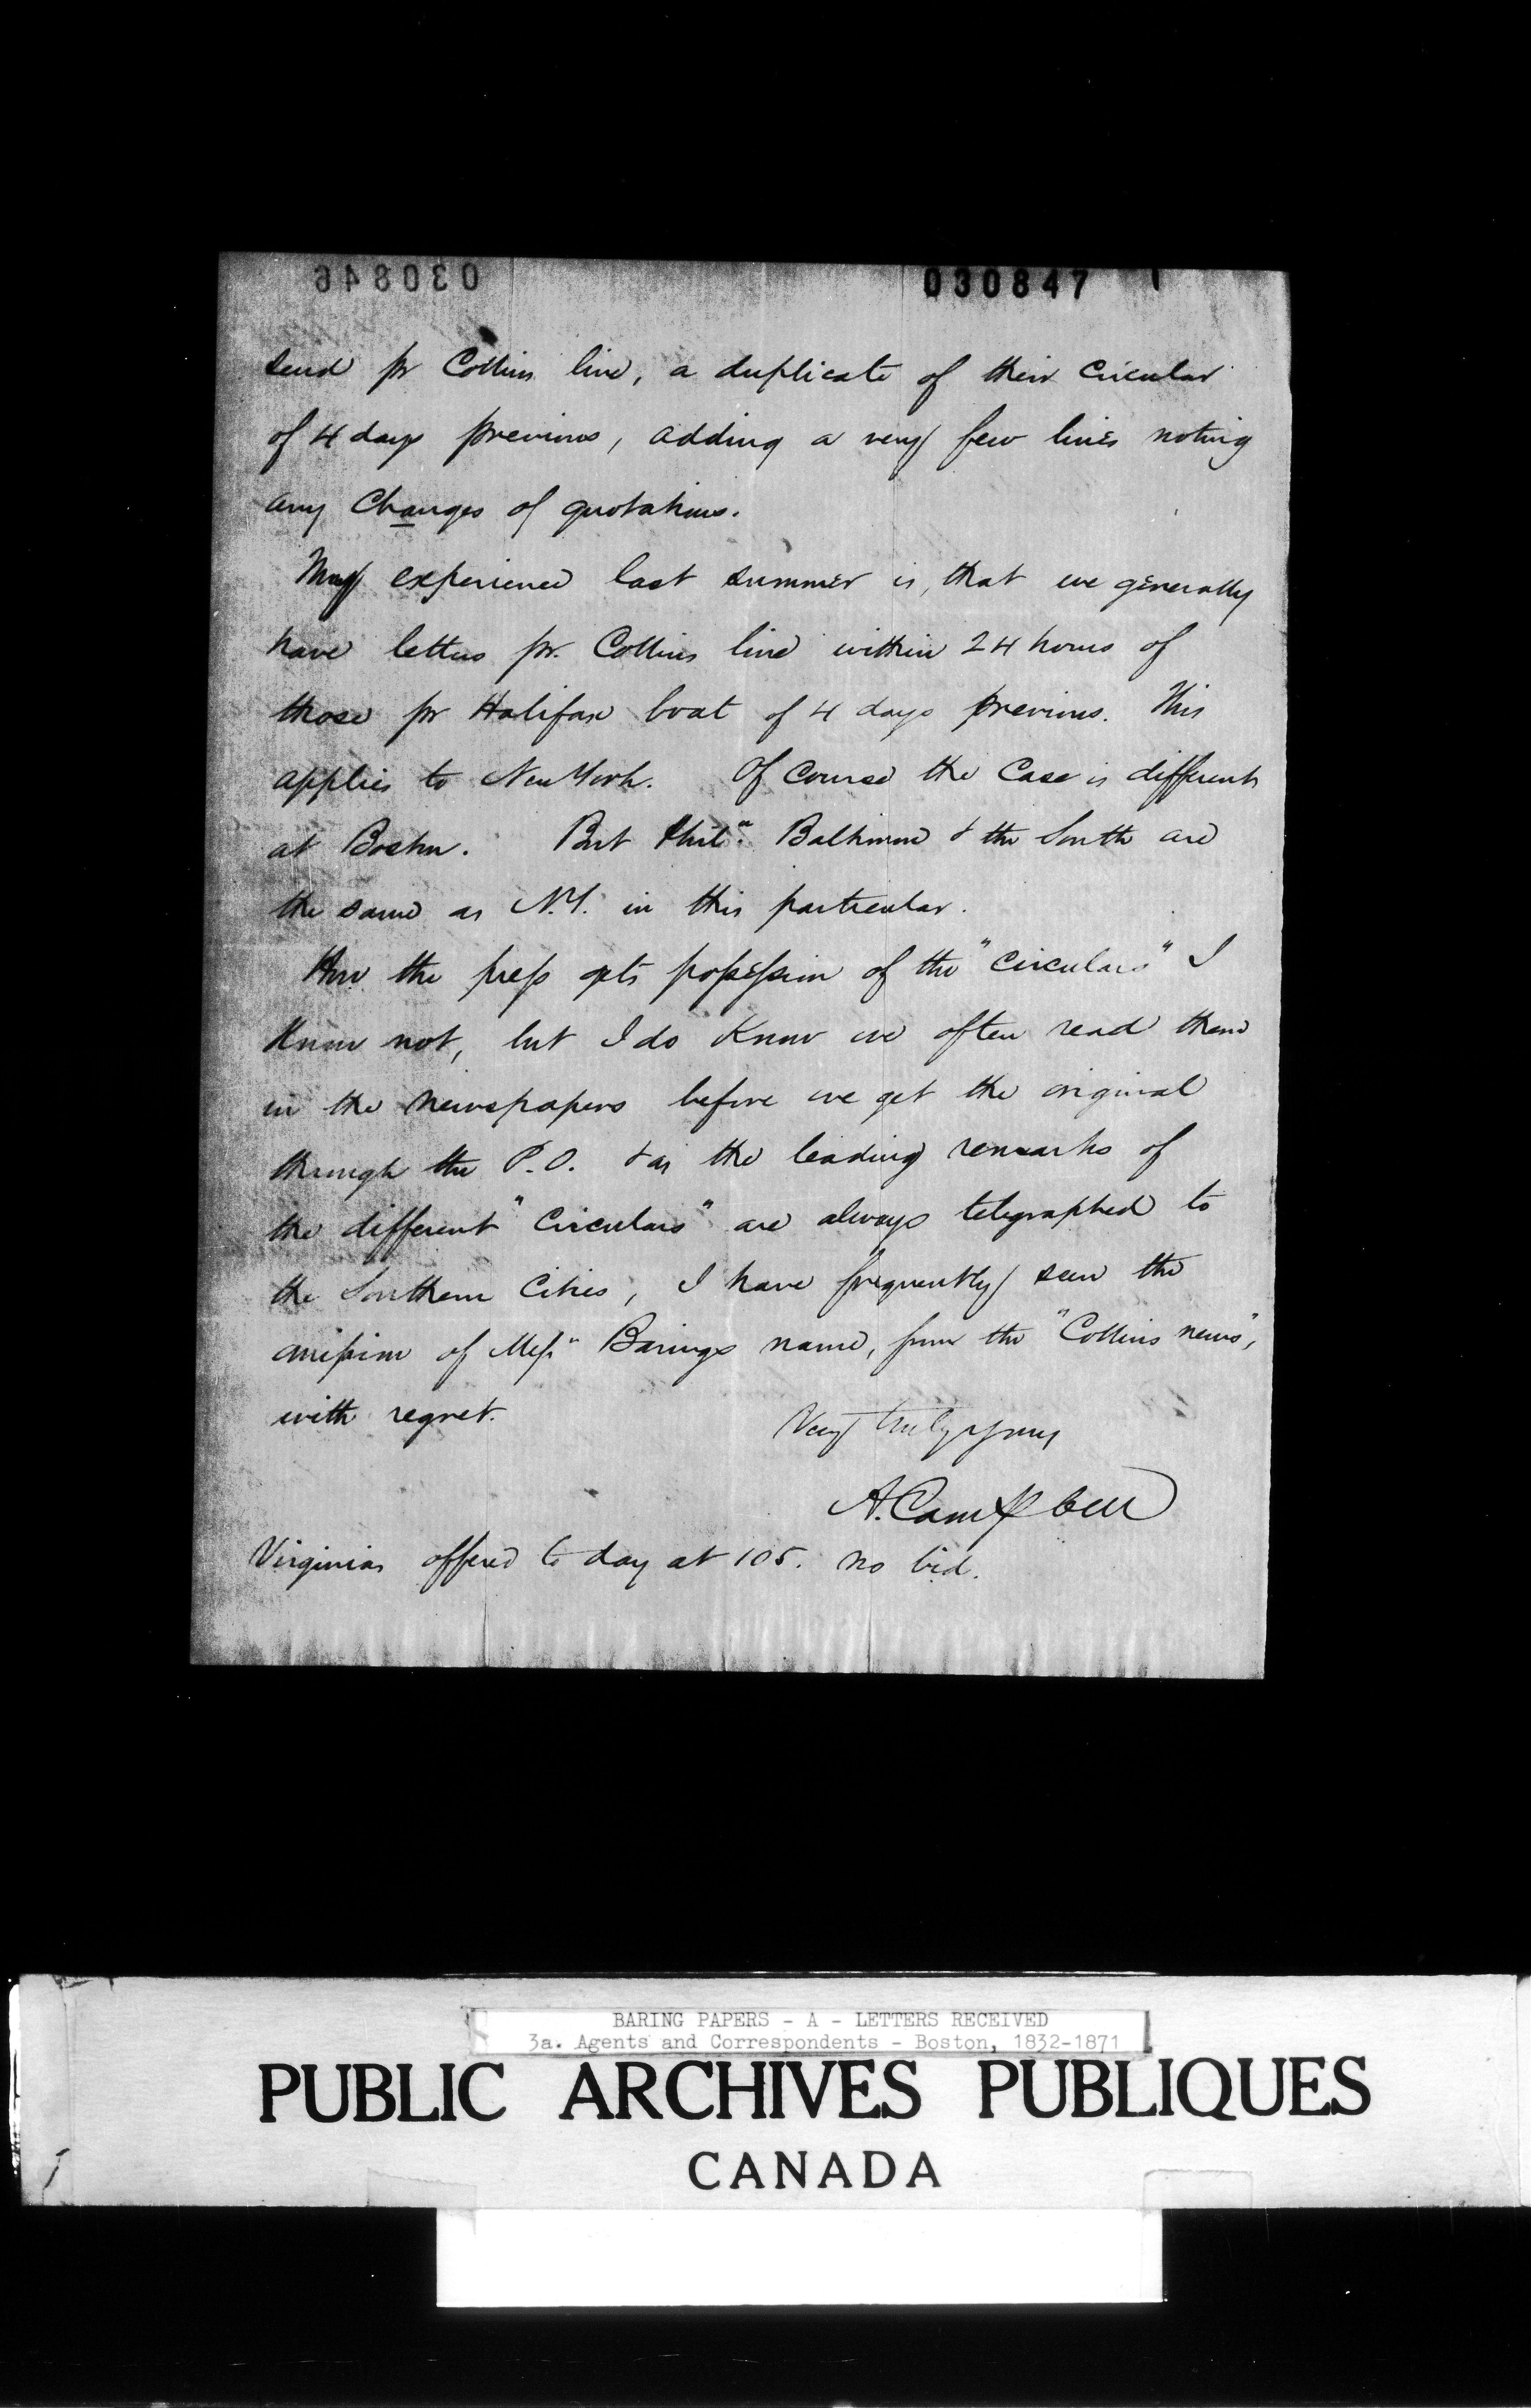 030846
030847
send pr Collins line, a duplicate of their Circular
of 4 days previous, adding a very few lines noting
any Changes of quotations.
My experience last summer is, that we generally
have letters pr. Collins line within 24 hours of
those pr Halifax boat of 4 days previous. This
applies to New York. Of Course the Case is different
at Boston. But Phila. Baltimore & the South are
the same as N.Y. in this particular.
How the press gets possession of the "circulars" I
Know not, but I do Know we often read them
in the newspapers before we get the original
through the P.O. & as the leading remarks of
the different "Circulars" are always telegraphed to
the Southern Cities, I have frequently seen the
omission of Messrs Barings name, from the "Collins news",
with regret.
Very truly yours
A. Campbell
Virginias offered to day at 105. no bid.
BARING PAPERS - A - LETTERS RECEIVED
3a. Agents and Correspondents - Boston, 1832-1871
PUBLIC ARCHIVES PUBLIQUES
CANADA